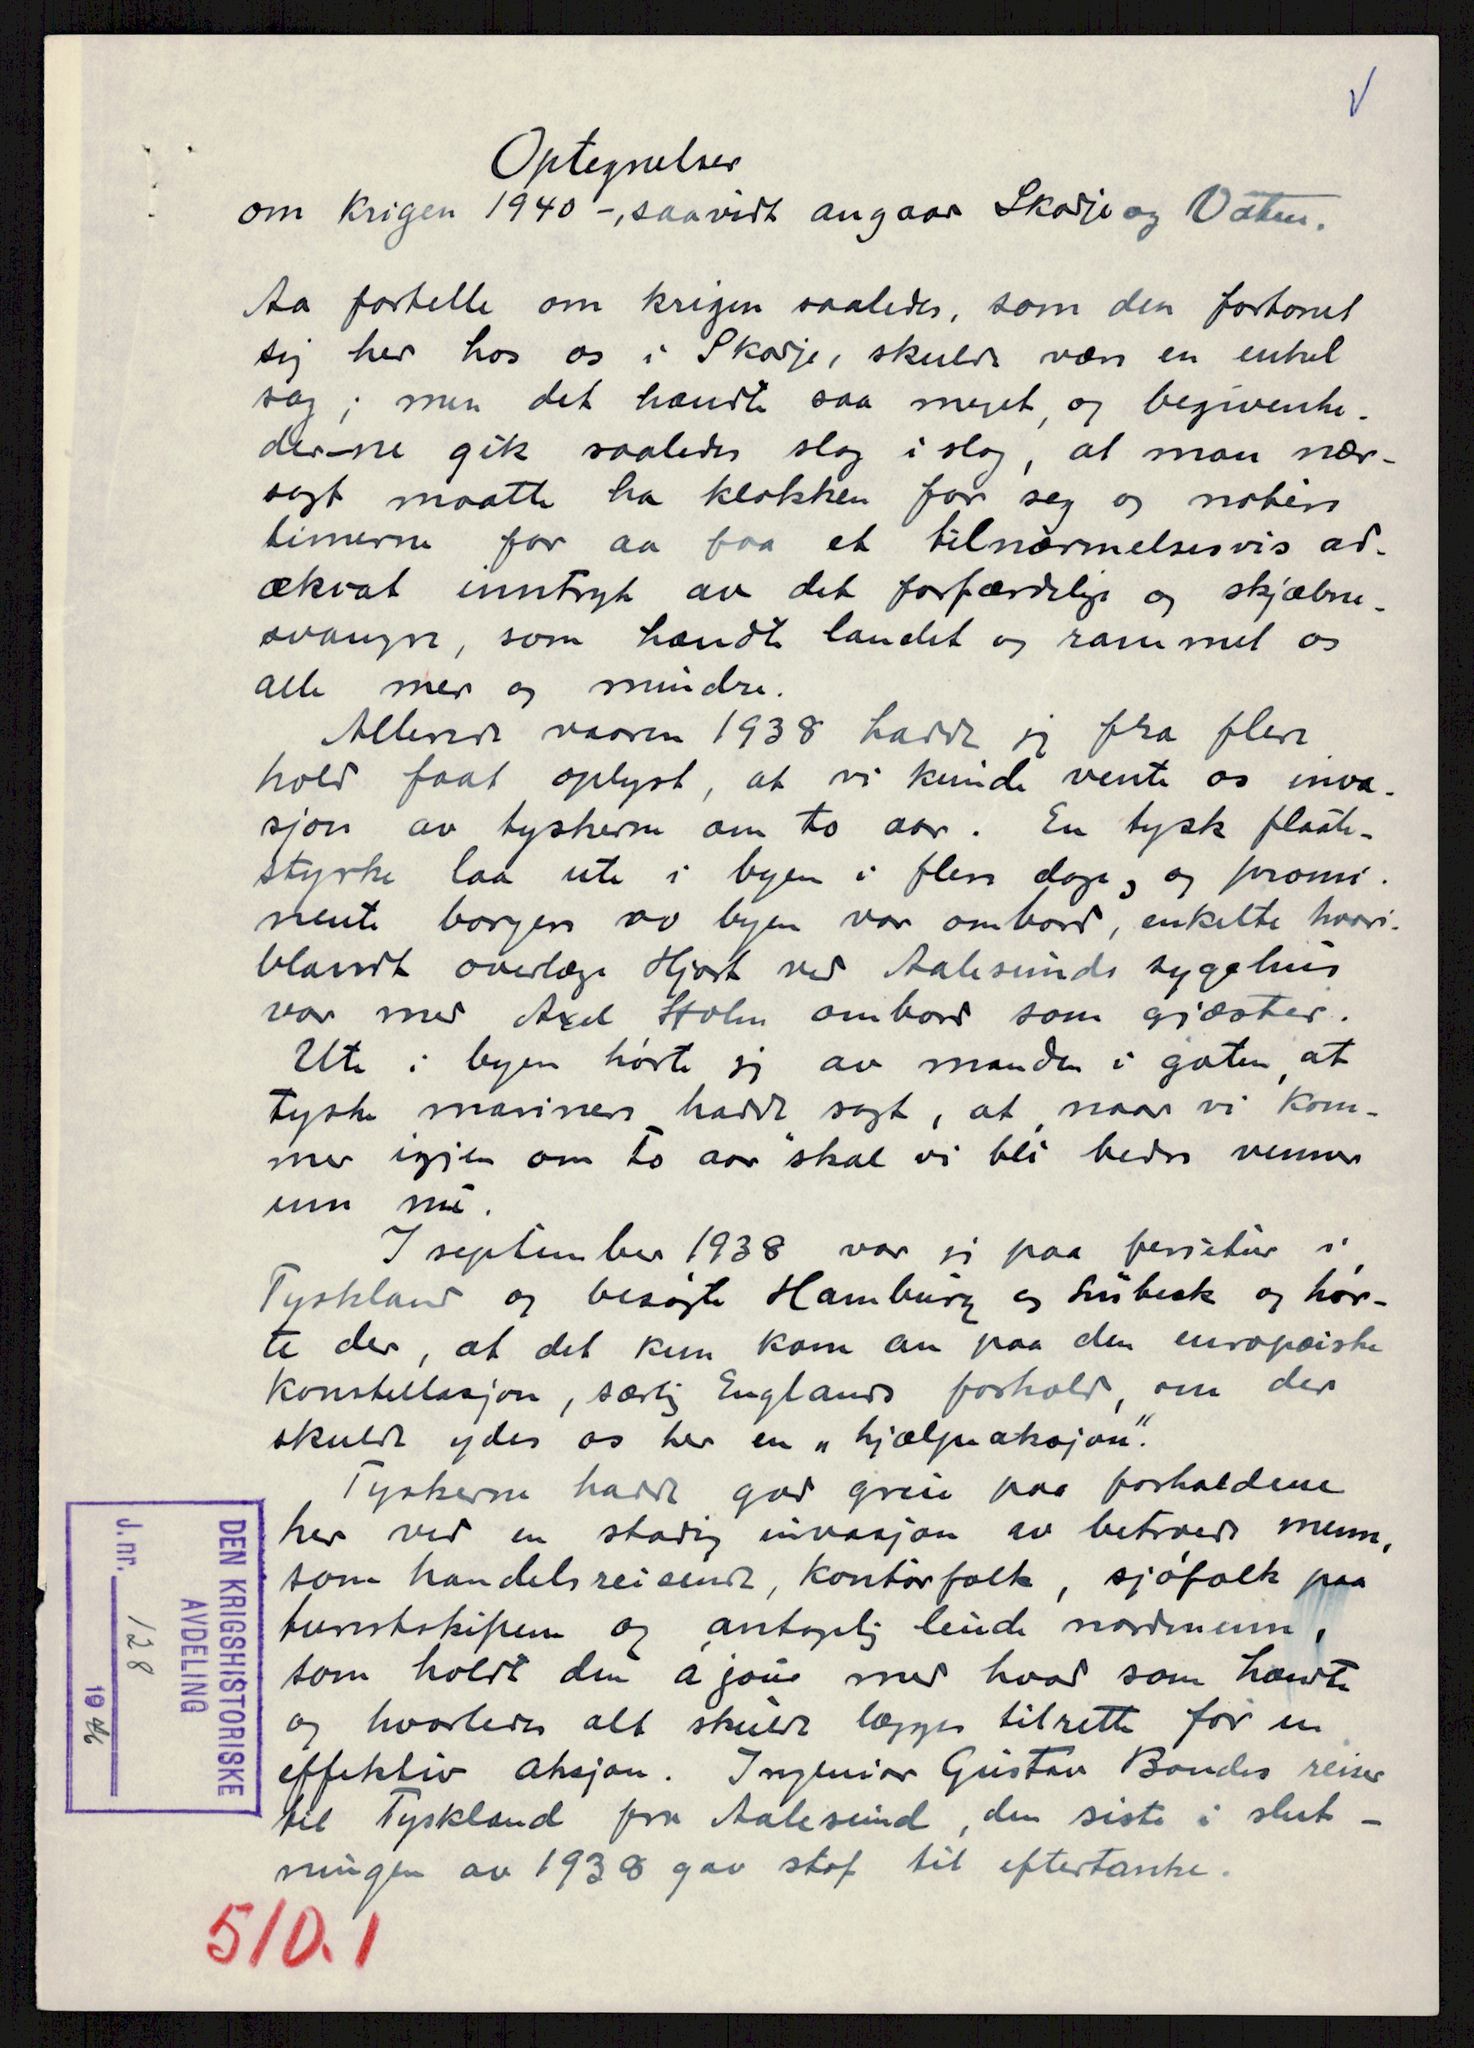 Optegnelser
om krigen 1940 -, saavidt angaar Skodje og Vatne.
Aa fortelle om krigen saaledes, som den fortonet
sig her hos os i Skodje, skulde være en enkel
sag; men det hændte saa meget, og begivenhe-
derne gik saaledes slag i slag, at man nær-
sagt maatte ha klokken for seg og notere
timerne for aa faa et tilnærmelsesvis ad-
ækvat inntryk av det forfærdelige og skjæbne-
svangre, som hændte landet og rammet os
alle mer og mindre.
Allerede vaaren 1938 hadde jeg fra flere
hold faat oplyst, at vi kunde vente os inva-
sjon av tyskerne om to aar. En tysk flaate-
styrke laa ute i byen i flere dage, og promi-
nente borgere av byen var ombord, enkelte hvori-
blandt overlæge Hjort ved Aalesunds sygehus
var med Axel Holm ombord som gjæster.
Ute i byen hørte jeg av manden i gaten, at
tyske marinere hadde sagt, at "naar vi kom-
mer igjen om to aar" skal vi bli bedre venner
enn nu.
I september 1938 var jeg paa ferietur i
Tyskland og besøgte Hamburg og Lübeck og hør-
te der, at det kun kom an paa den europæiske
konstellasjon, særlig Englands forhold, om der
skulde ydes os her en „hjælpeaksjon".
Tyskerne hadde god greie paa forholdene
her ved en stadig invasjon av betroede menn,
som handelsreisende, kontorfolk, sjøfolk paa
turistskipene og antagelig leiede nordmenn,
som holdt dem à jour med hvad som hændte
og hvorledes alt skulde lægges tilrette for en
effektiv aksjon. Ingeniør Gustav Bondes reiser
til Tyskland fra Aalesund, den siste i slut-
ningen av 1938 gav stof til eftertanke.
DEN KRIGSHISTORISKE
AVDELING
J. nr. 128
19
5/D.1